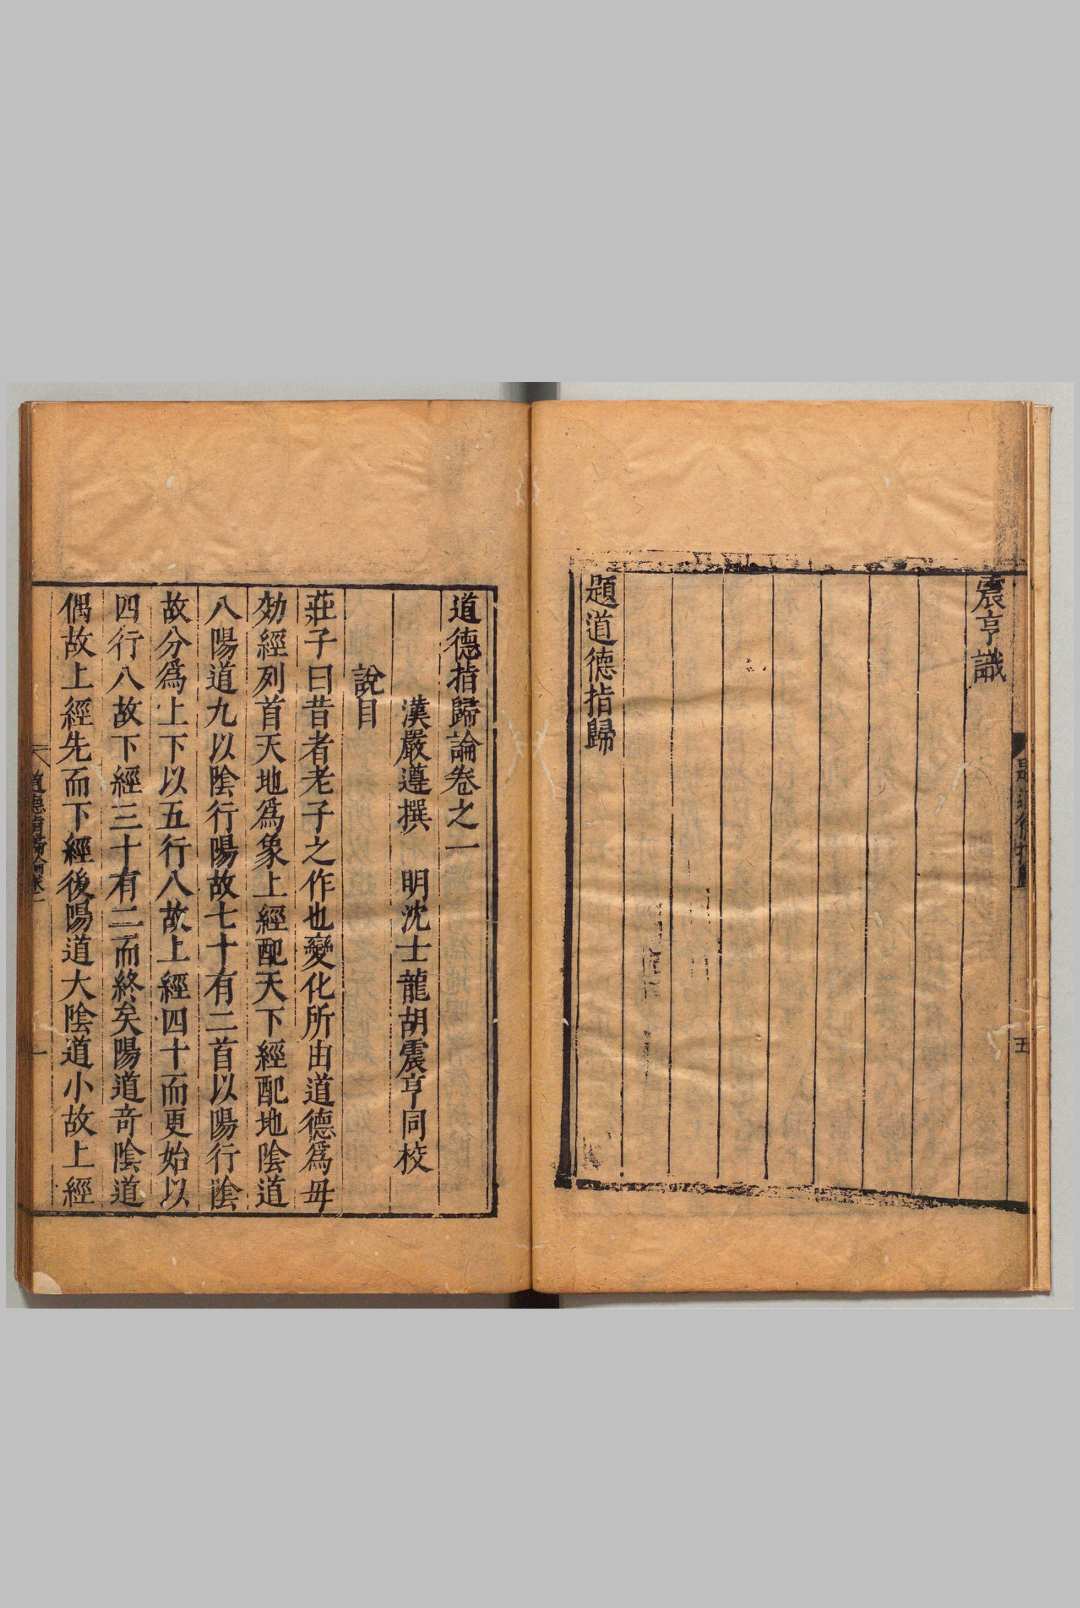 震亨識
題道德指歸
五
道德指歸論卷之一
漢嚴遵撰　明沈士龍胡震亨同校
說目
莊子曰昔者老子之作也變化所由道德爲毋
効經列首天地爲象上經配天下經配地陰道
八陽道九以陰行陽故七十有二首以陽行陰
故分爲上下以五行八故上經四十而更始以
四行八故下經三十有二而終矣陽道奇陰道
偶故上經先而下經後陽道大陰道小故上經
道德指歸論卷一
一